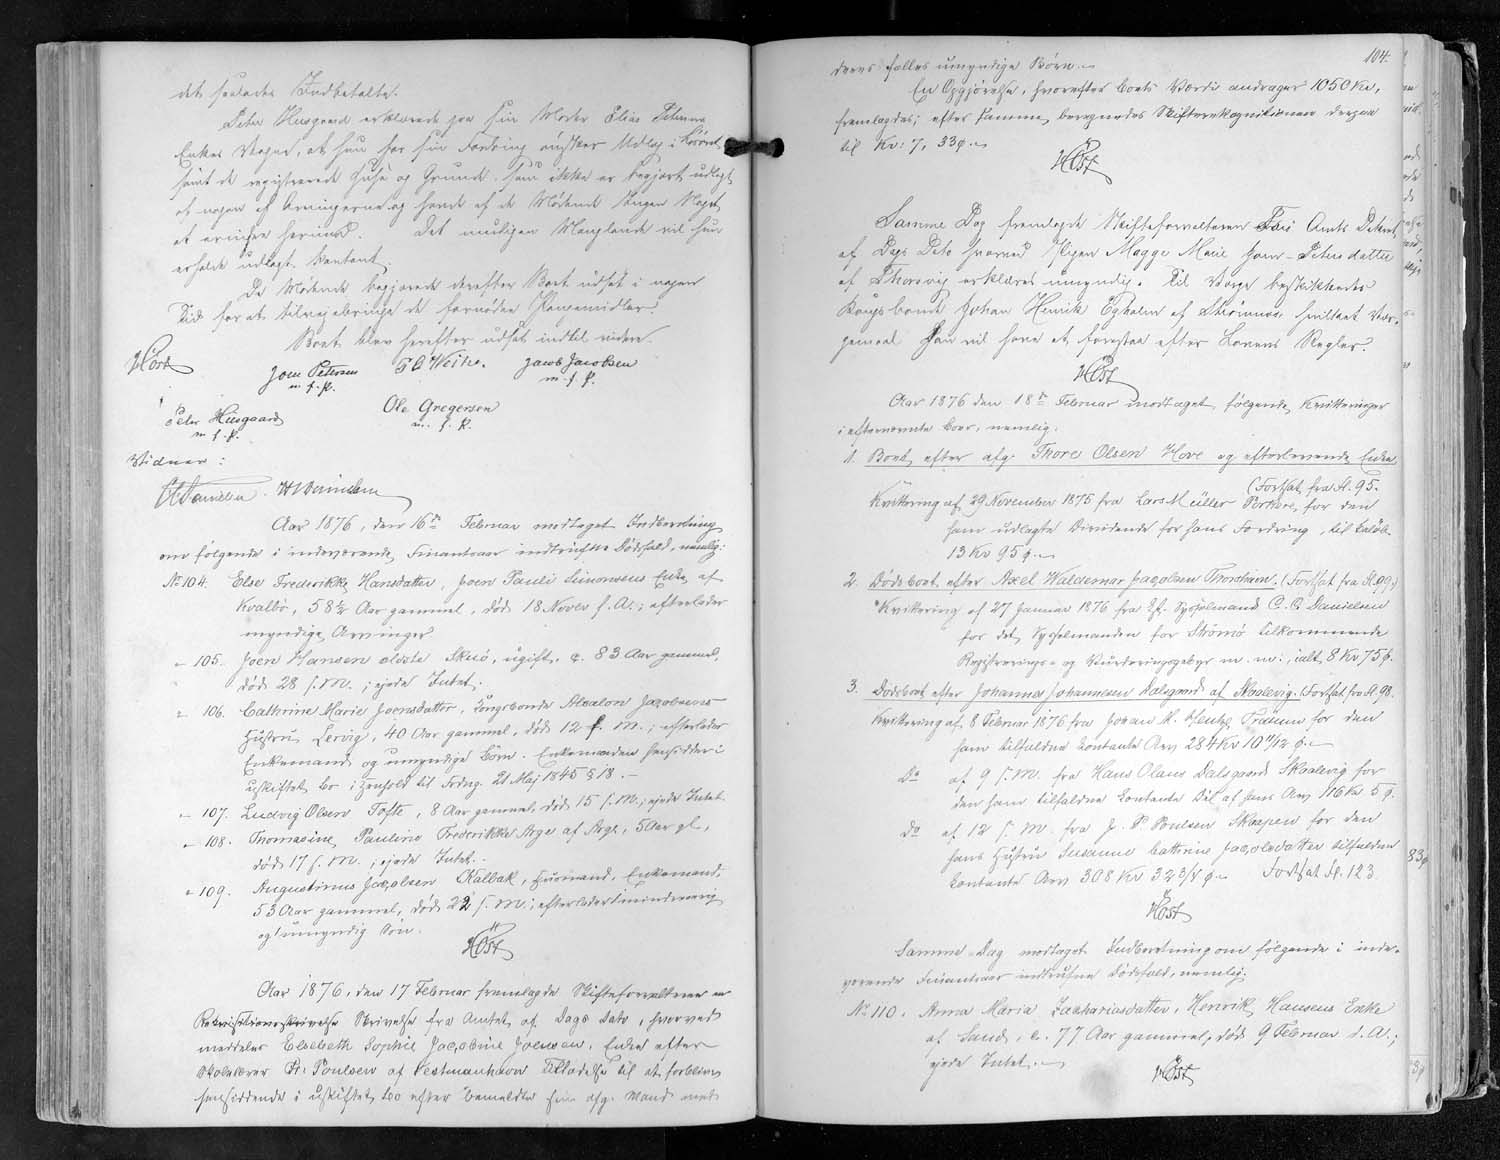 det saaledes Indbetalte.
Peter Husgaard erklærede paa sin Moder Elias Petersens
Enkes Vegne, at hun for sin Fordring ønsker Udlag i
samt de registrerede Huse og Grunde som ikke er begjært udlagt
af nogen af Arvingerne og havde af de Mødende Ingen Noget
at erindre herimod. Det muligen Manglende vil hun
erholde udlagt kontant.
De Mødende begjærede derefter Boet udsat i nogen
Tid for at tilveiebringe de fornødne Pengemidler.
Boet blev herefter udsat indtil videre.
Høst
Joen Petersen
m. f. P.
Jacob Jacobsen
m. f. P.
Peter Husgaard
m. f. P.
Ole Gregersen
m. f. P.
Vidner:
Aar 1876, den 16de Februar modtaget Indberetning
om følgende i indeværende Finantsaar indtrufne Dødsfald, nemlig:
No 104. Else Frederikke Hansdatter, Joen Pauli Simonsens Enke af
Kvalbø, 58½ Aar gammel, død 18 Novbr f. A.; efterlader
myndige Arvinger
" 105. Joen Hansen ældste Skuø, ugift, c. 83 Aar gammel,
død 28 f. M.; ejede Intet.
" 106. Cathrine Marie Joensdatter, Kongsbonde Absalon Jacobsens
Hustru Lervig, 40 Aar gammel, død 12 f. M.; efterlader
Enkemand og umyndige Børn. Enkemanden hensidder i
uskiftet Bo i Henhold til Frdng. 21 Maj 1845 § 18. -
" 107. Ludvig Olsen Tofte, 8 Aar gammel, død 15 f. M.; ejede Intet
" 108. Thomasine Pauline Frederikke Arge af Arge, 5 Aar gl.,
død 17 f. M.; ejede Intet.
" 109. Augustinus Jacobsen Kalbak, Huusmand, Enkemand,
53 Aar gammel, død 22 f. M.; efterlader 1 mindreaarig
og 1 umyndig Søn.
Høst
Aar 1876, den 17 Februar fremlagde Skifteforvalteren en
Skrivelse fra Amtet af Dags Dato, hvorved
meddeles Elsebeth Sophie Jacobine Joensen, Enke efter
Skolelærer Fr: Poulsen af Vestmanhavn Tilladelse til at forblive
hensiddende i uskiftet Bo efter bemeldte sin afg. Mand med
104.
deres fælles umyndige Børn.
En Opgjørelse, hvorefter Boets Værdi andrager 1050 Kr,
fremlagdes; efter samme beregnedes Skifterekognitionen deraf
til Kr: 7, 33 ø.
Høst
Samme Dag fremlagde Skifteforvalteren Amts Dekret
af Dags Dato hvorved Pigen Magge Marie Joen-Petersdatter
af Thorsvig erklæres umyndig. Til Værge beskikkedes
Kongsbonde Johan Henrik Egholm af Strømnæs hvilket Vær-
gemaal han vil have at forestaa efter Lovens Regler.
Høst
Aar 1876 den 18de Februar modtaget følgende Kvitteringer
i efternævnte Boer, nemlig:
1. Boet efter afg. Thore Olsen Hove og efterlevende Enke
(Fortsat fra fl. 95.
Kvittering af 29 November 1875 fra Lars Müller Porkere, for den
ham udlagte Dividende for hans Fordring, til Beløb
13 Kr 95 ø.
2. Dødsboet efter Axel Waldemar Jacobsen Thorshavn. (Fortsat fra fl. 99.)
Kvittering af 27 Januar 1876 fra Hr. Sysselmand C. C. Danielsen
for det Sysselmanden for Strømø tilkommende
Registrerings- og Vurderingsgebyr m. m:, ialt 8 Kr 75 ø.
3. Dødsboet efter Johannes Johannesen Dalsgaard af Skaalevig. (Fortsat fra fl. 98.
Kvittering af 8 Februar 1876 fra Johan H. Hentze for den
ham tilfaldne kontante Arv 284 Kr 10 11/12 ø.
Do af 9 f. M. fra Hans Olaus Dalsgaard Skaalevig for
den ham tilfaldne kontante Del af hans Arv 116 Kr 5 ø.
do af 12 f. M. fra J. P. Poulsen Skaapen for den
hans Hustru Susanne Cathrine Jacobsdatter tilfaldne
kontante Arv 308 Kr 32 3/4 ø. Fortsat fl. 123.
Høst
Samme Dag modtaget Indberetning om følgende i inde-
værende Finantsaar indtrufne Dødsfald, nemlig:
No 110. Anna Maria Zachariasdatter, Henrik Hansens Enke
af Sand, c. 77 Aar gammel, død 9 Februar d. A.;
ejede Intet.
Høst